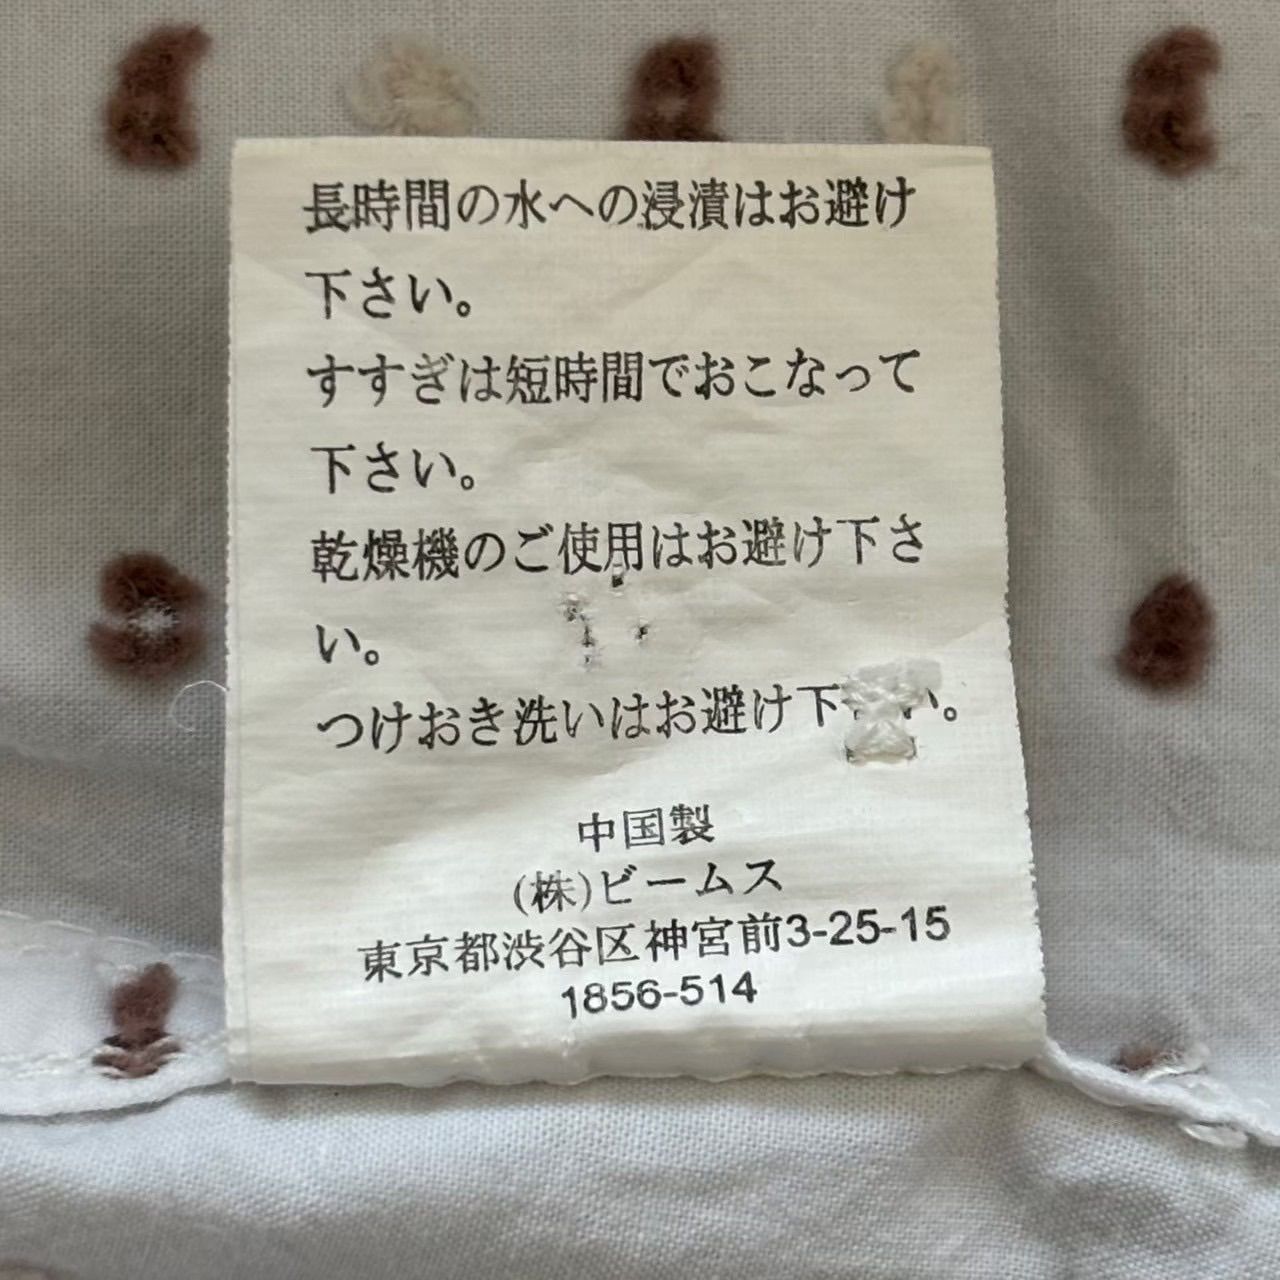 長時間の水への浸漬はお避け
下さい。
すすぎは短時間でおこなって
下さい。
乾燥機のご使用はお避け下さ
い。
つけおき洗いはお避け下い。
中国製
(株)ビームス
東京都渋谷区神宮前3-25-15
1856-514